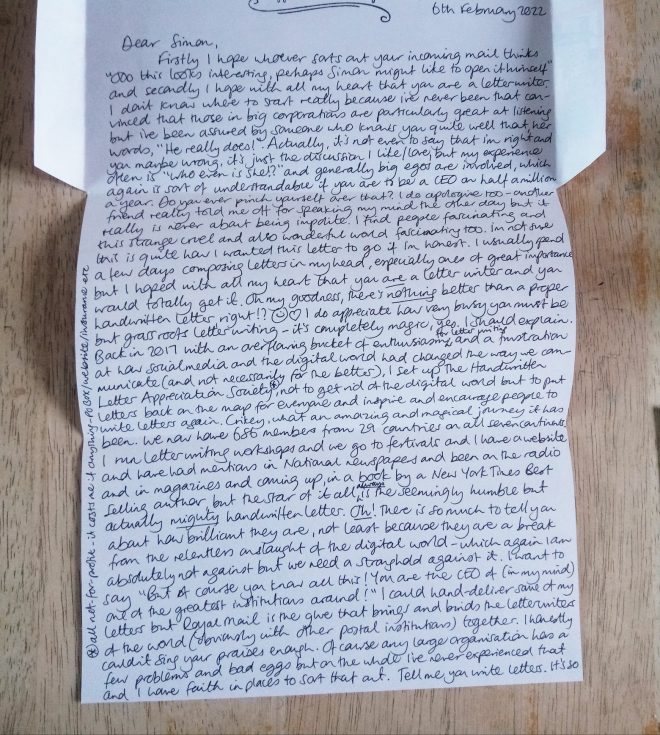 6th February 2022
Dear Simon,
Firstly I hope whoever sorts out your incoming mail thinks
"Ooo this looks interesting, perhaps Simon might like to open it himself"
and secondly I hope with all my heart that you are a letter writer.
I don't know where to start really because i've never been that con-
vinced that those in big corporations are particularly great at listening
but i've been assured by someone who knows you quite well that, her
words, "He really does!" Actually, it's not even to say that im right and
you maybe wrong, it's just the discussion I like/love, but my experience
often is "who even is she!?" and generally big egos are involved, which
again is sort of understandable if you are to be a CEO on half a million
a year. Do you ever pinch yourself over that? I do apologise too - another
friend really told me off for speaking my mind the other day but it
really is never about being impolite. I find people fascinating and
this strange cruel and also wonderful world fascinating too. Im not sure
this is quite how I wanted this letter to go if Im honest. I usually spend
a few days composing letters in my head, especially ones of great importance
but I hoped with all my heart that you are a letter writer and you
would totally get it. Oh my goodness, there's nothing better than a proper
handwritten letter right!? ☺♡ I do appreciate how very busy you must be
but grass roots letter writing - it's completely magic, yes. I should explain.
Back in 2017 with an overflowing bucket of enthusiasm for letter writing and a frustration
at how social media and the digital world had changed the way we com-
municate (and not necessarily for the better), I set up the Handwritten
Letter Appreciation Society⊛, not to get rid of the digital world but to put
letters back on the map for everyone and inspire and encourage people to
write letters again. Crikey, what an amazing and magical journey it has
been. We now have 686 members from 29 countries on all seven continents,
I run letter writing workshops and we go to festivals and I have a website
and have had mentions in National newspapers and been on the radio
and in magazines and coming up, in a book by a New York Times Best
Selling author, but the star of it all always is the seemingly humble but
actually mighty handwritten letter. Oh! There is so much to tell you
about how brilliant they are, not least because they are a break
from the relentless onslaught of the digital world - which again I am
absolutely not against but we need a stronghold against it. I want to
say "But of course you know all this! You are the CEO of (in my mind)
one of the greatest institutions around!" I could hand-deliver some of my
letters but Royal Mail is the glue that brings and binds the letter writers
of the world (obviously with other postal institutions) together. I honestly
couldn't sing your praises enough. Of course any large organisation has a
few problems and bad eggs but on the whole i've never experienced that
and I have faith in places to sort that out. Tell me you write letters. It's so
⊛ all not-for-profit - it costs me if anything - PO Box/website/insurance etc